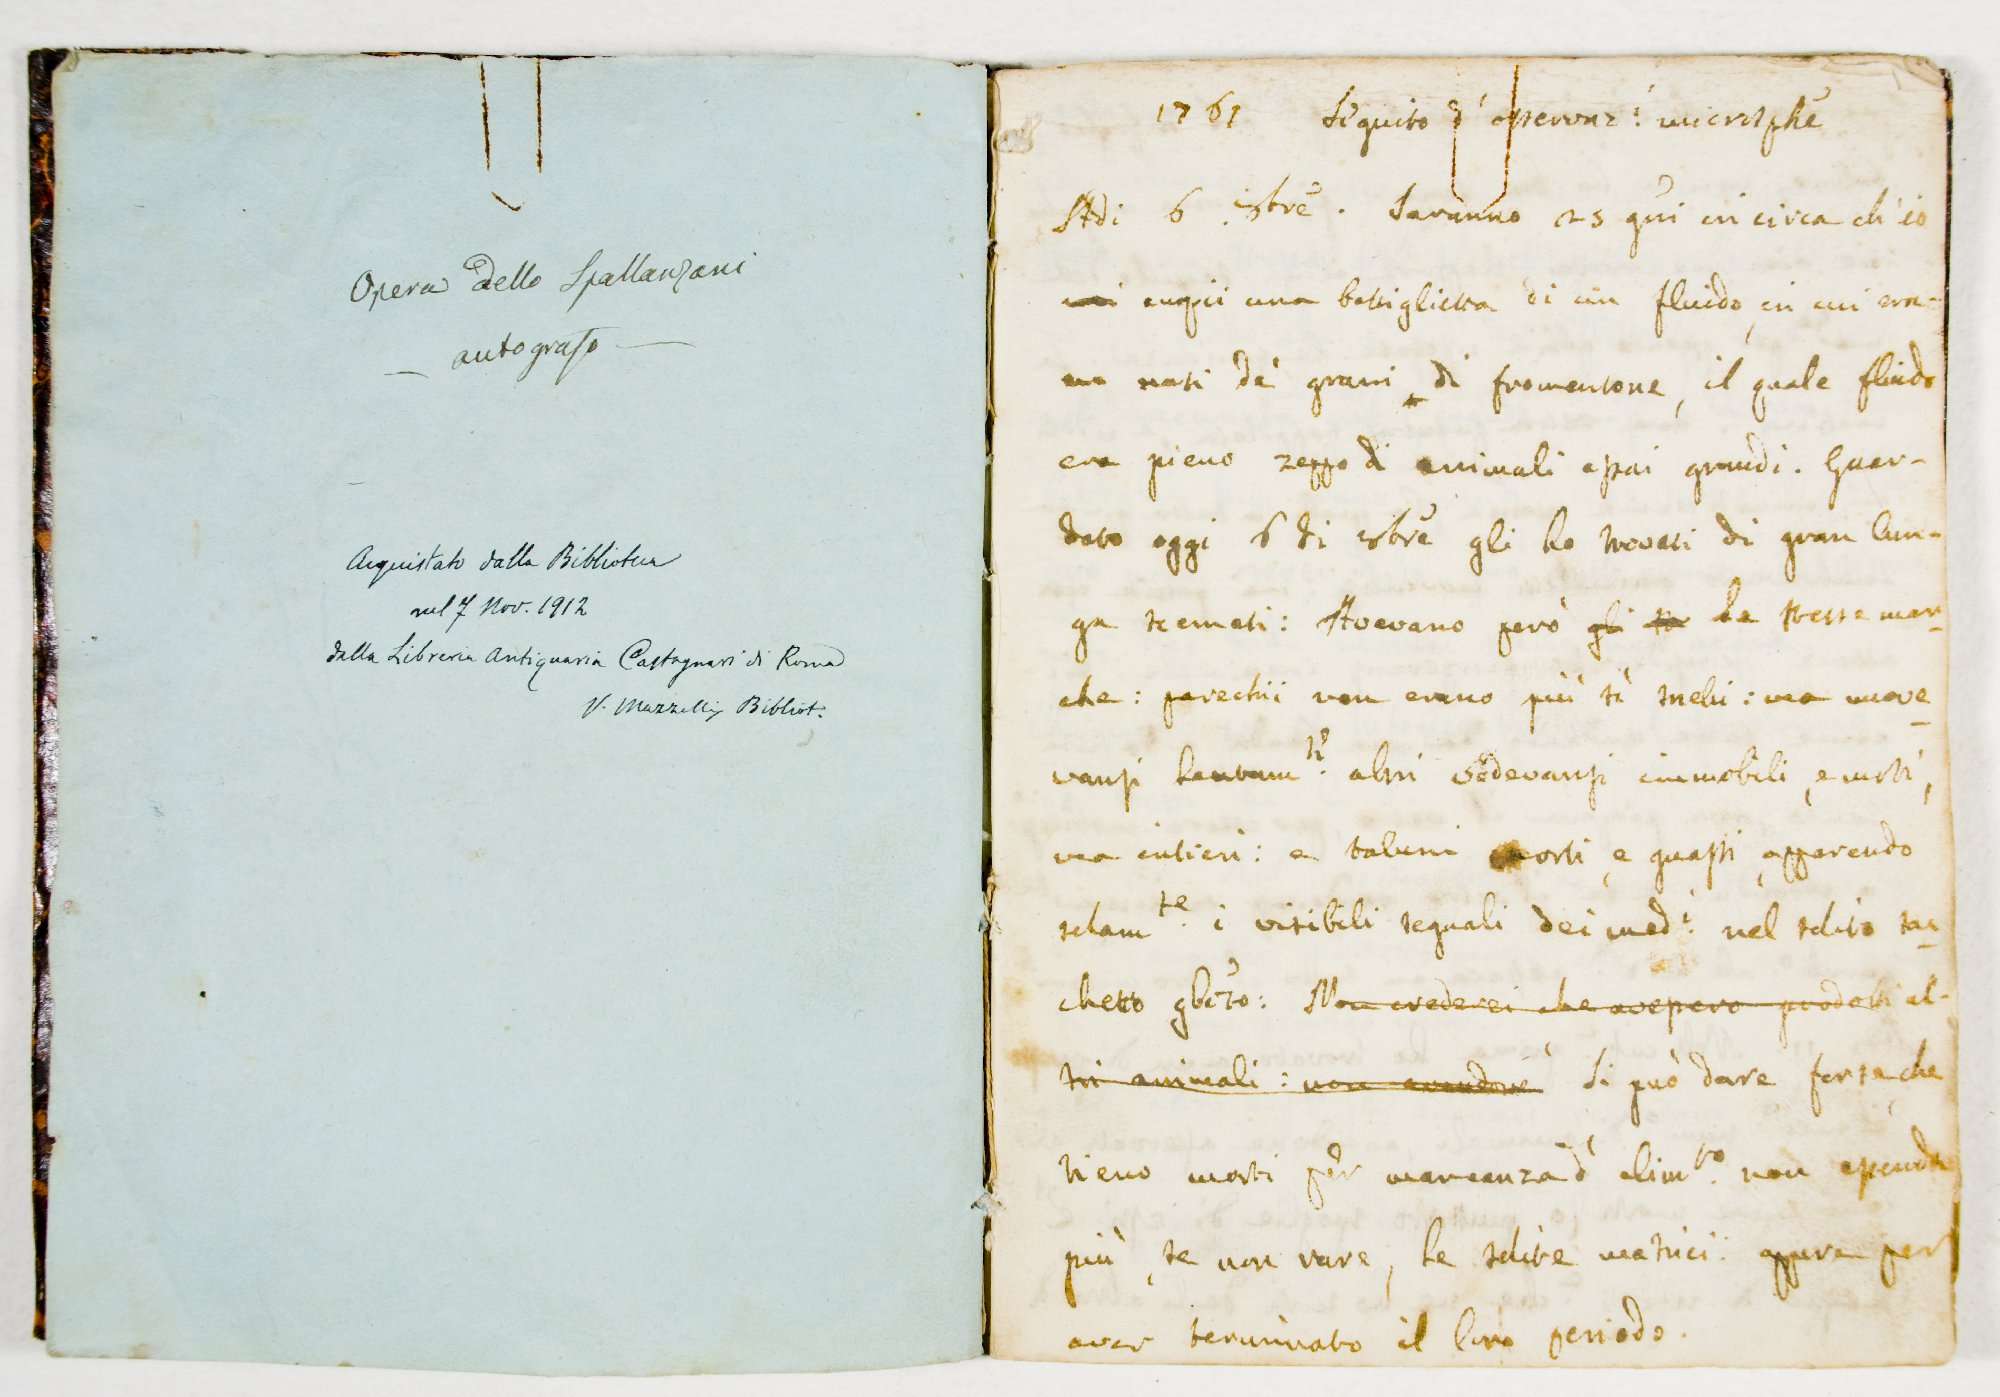 Opera dello Spallanzani
— autografo —
Acquistato dalla Biblioteca
nel 7 Nov. 1912
dalla Libreria Antiquaria Castagnari di Roma
V. Mazzelli Bibliot.
1761 Seguito d' osservaz:i microsche
Adi 6 8bre. Saranno 25 gni in circa ch'io
empii una bottiglietta di un fluido, in cui era-
no nati de' grani di formentone, il quale fluido
era pieno zeppo di animali assai grandi. Guar-
dato oggi 6 di 8bre gli ho trovati di gran lun-
ga scemati: Avevano però gli le stesse mar-
che: parechii non erano più sì snelli: ma move-
vansi lentam:te altri vedevansi immobili, e morti,
ma intieri: e taluni morti, e guasti, apparendo
solam:te i visibili segnali dei med:i nel solito sac-
chetto gbto: Non crederei che avessero prodotti al-
tri animali: non avendone Si può dare forse, che
sieno morti per mancanza d' alim:to non essendo
più, se non rare, le solite matrici: oppure per
aver terminato il loro periodo.